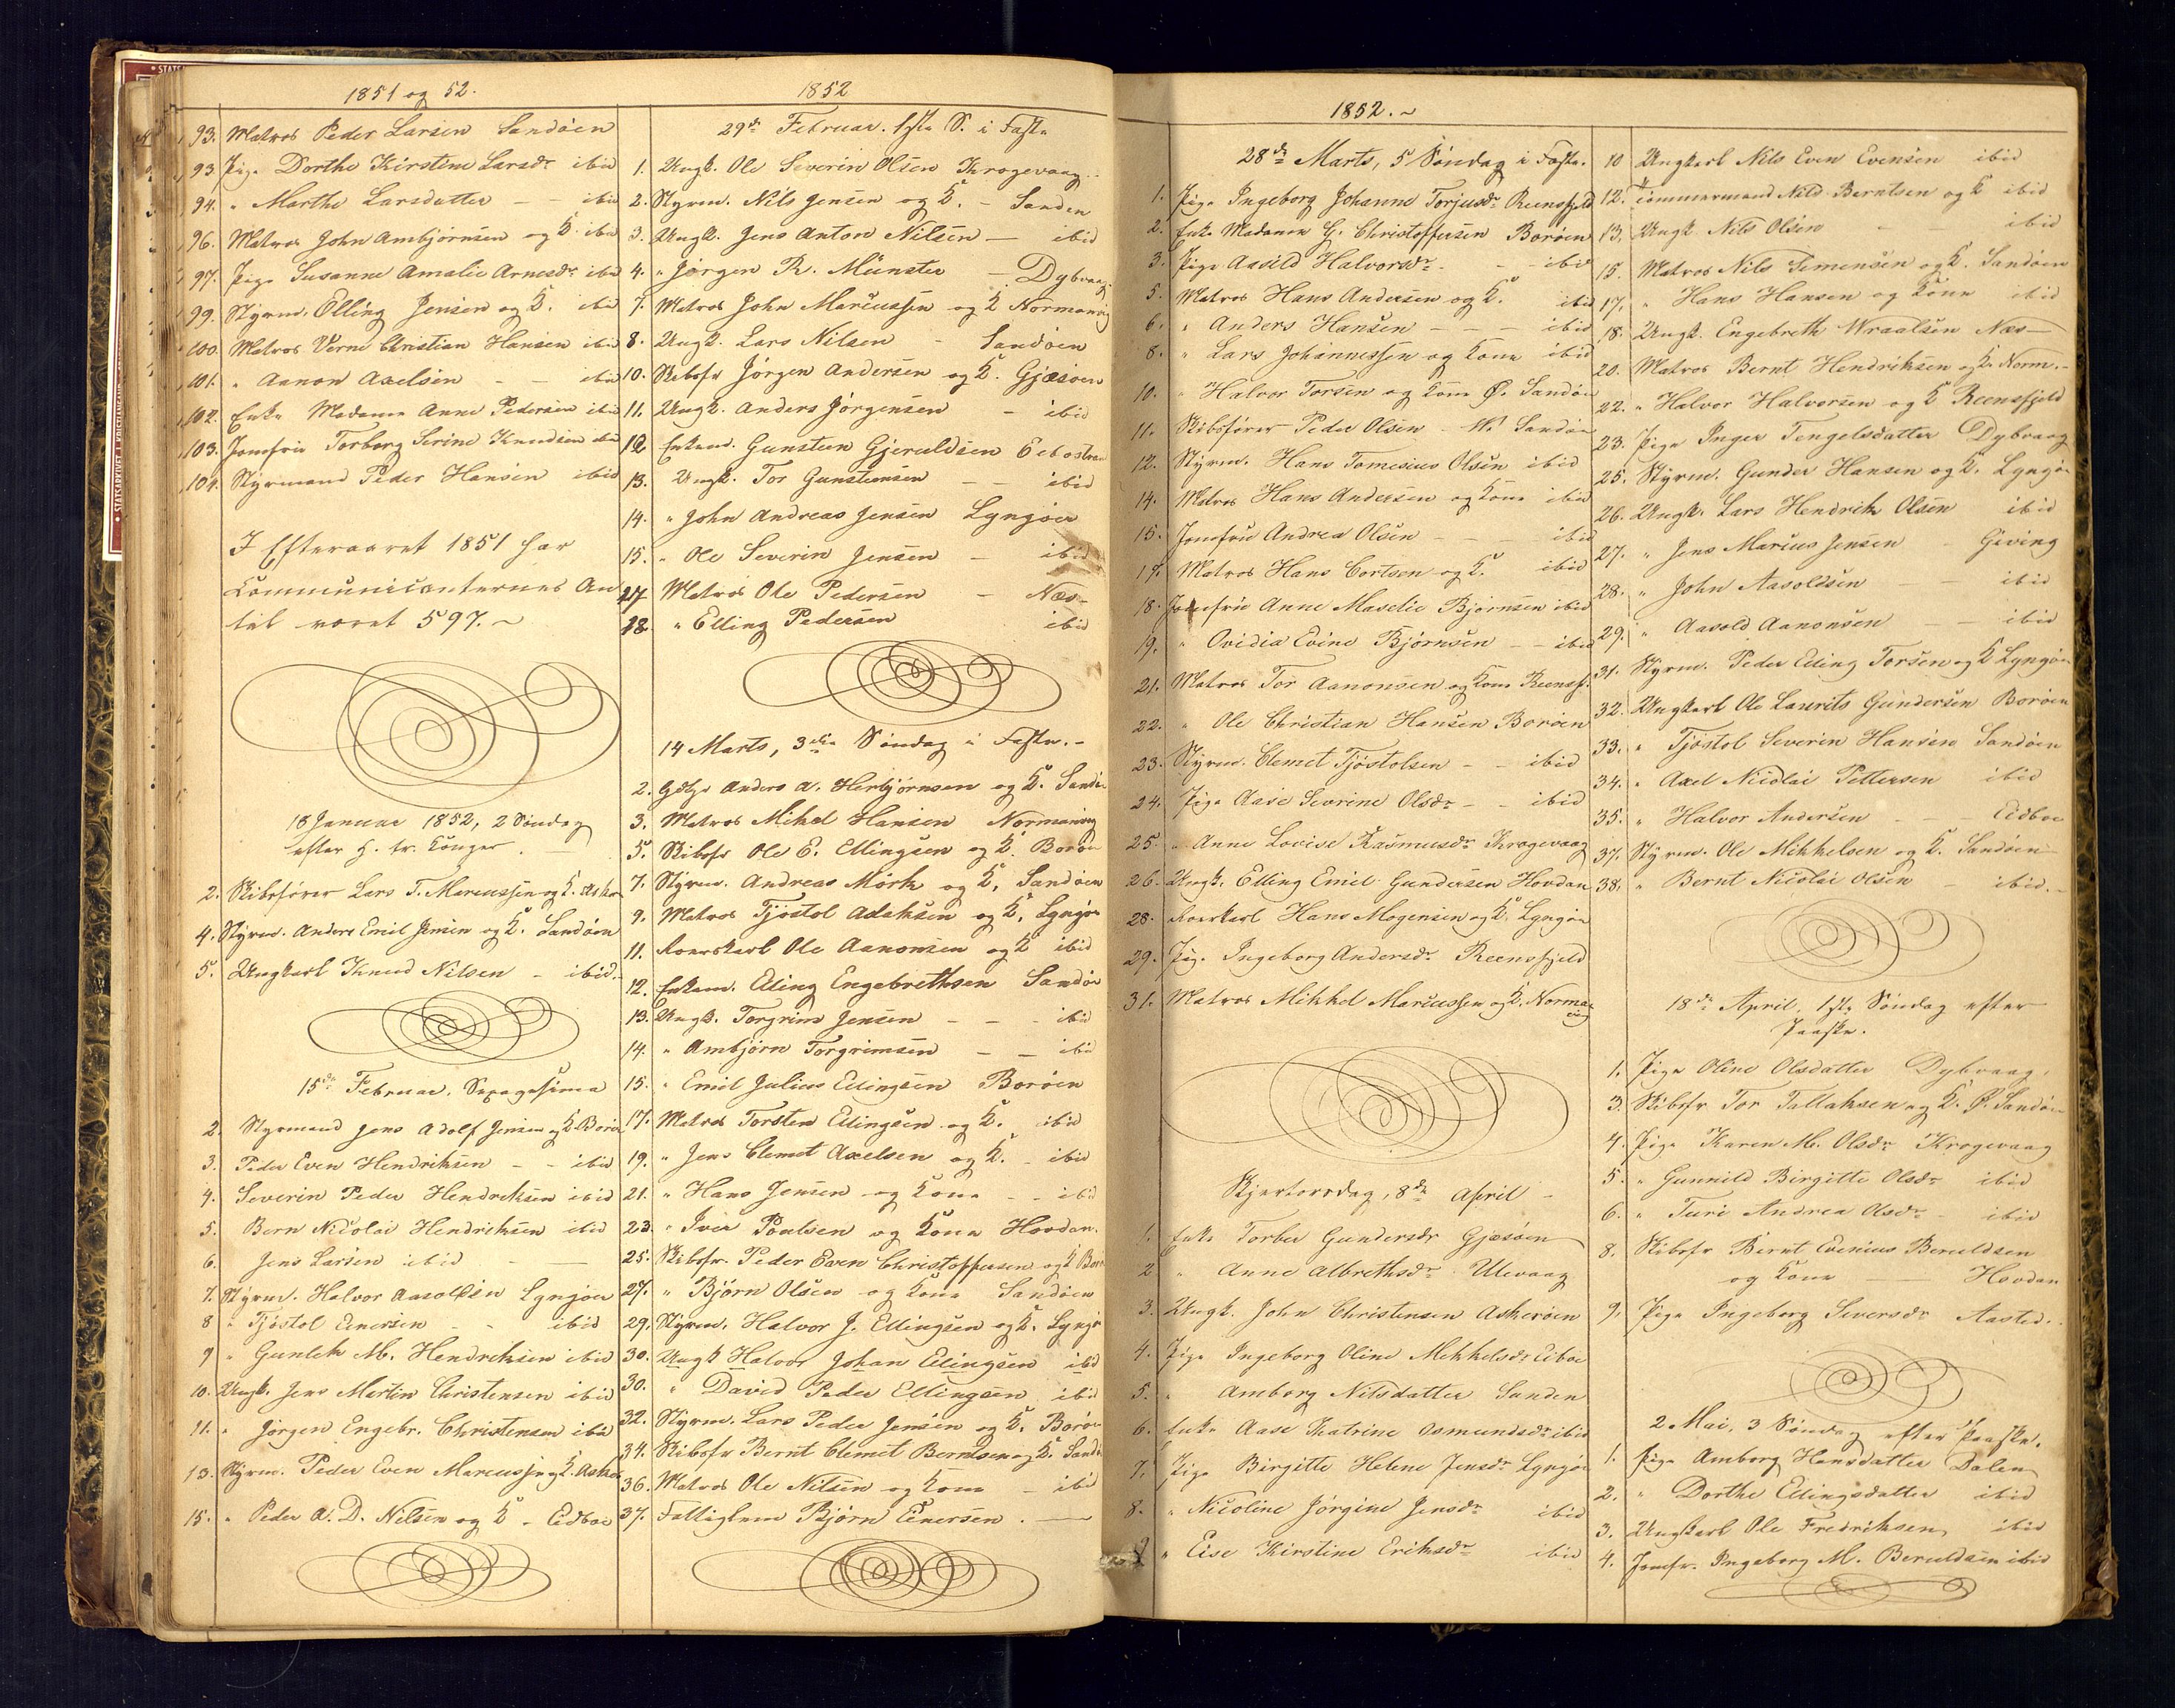 1851 og 52.
93. Matros Peder Larsen Sandøen
93 Pige Dorthe Kirstine Larsdr ibid
94. " Marthe Larsdatter - - ibid
96. Matros John Ambjørnsen og K. ibid
97. Pige Susanne Amalie Arnesdr ibid
99. Styrm. Elling Jensen og K. ibid
100. Matros Verne Christian Hansen ibid
101. " Aanon Axelsen - - ibid
102. Enke Madame Anne Pedersen ibid
103. Jomfrue Torborg Serine Knudsen ibid
104. Styrmand Peder Hansen ibid
I Efteraaret 1851 har
Communicanternes An
tal været 597. ~
18 Januar 1852, 2 Søndag
efter H. tr. Konger.
2. Skibsfører Lars T. Marcussen og K. Asker
4. Styrm. Anders Emil Jensen og K. Sandøen
5. Ungkarl Knud Nilsen - ibid.
15de Februar. Sexagesima
2. Styrmand Jens Adolf Jensen og K. Borøe
3. Peder Even Hendriksen - - ibid
4. Severin Peder Hendriksen ibid
5. Bern Nicolai Hendriksen ibid
6. Jens Larsen ibid
7. Styrm. Halvor Aasoldsen Lyngøer
8 " Tjøstol Enersen - - ibid
9 " Gunlek M. Hendriksen ibid
10. Ungk. Jens Martin Christensen ibid
11. " Jørgen Engebr. Christensen ibid
13. Styrm. Peder Even Marcussen og K. Asker
15. " Peder A. D. Nilsen og K - Eidboe
1852
29de Februar. 1ste S. i Faste
1. Ungk. Ole Severin Olsen Krogevaag
2. Styrm. Nils Jensen og K. - Sanden
3. Ungk. Jens Anton Nilsen - ibid
4. " Jørgen R. Münster - Dybvaag
7. Matros John Marcussen og K Normanvig
8. Ungk. Lars Nilsen - Sandøen
10. Skibsfr Jørgen Andersen og K. Gjæsøen
11. Ungk. Anders Jørgensen - ibid
12 Enkem. Gunsten Gjeruldsen
13. Ungk. Tor Gunstensen - - ibid
14. " John Andreas Jensen Lyngøer
15. " Ole Severin Jensen - ibid
17 Matros Ole Pedersen - Næs-
18. " Elling Pedersen ibid
14 Marts, 3die Søndag i Faste. -
2. Anders A. Herbjørnsen og K. Sandø
3. Matros Mikel Hansen Normanvig
5. Skibsfr Ole E. Ellingsen og K. Borøe
7. Styrm. Andreas Mørk og K. Sandøen
9. Matros Tjøstol Adaksen og K. Lyngør
11. Ole Aanonsen og K ibid
12. Enkem. Elling Engebrethsen Sandøe
13. Ungk. Torgrim Jensen - - - ibid
14. " Ambjørn Torgrimsen - - ibid
15. " Emil Julius Ellingsen Borøen
17. Matros Torsten Ellingsen og K. ibid
19. " Jens Clemet Axelsen og K. - ibid
21. " Hans Jensen og Kone - - ibid
23. " Iver Poulsen og Kone Hovdan.
25. Skibsfr. Peder Even Christoffersen og K Bor
27. " Bjørn Olsen og Kone Sandøen
29. Styrm. Halvor J. Ellingsen og K. Lyngø
30. Ungk Halvor Johan Ellingsen ibid
30. " David Peder Ellingsen ibid
32. Styrm. Lars Peder Jensen og K. Borøe
34. Skibsfr Bernt Clemet Berntsen og K. Sandø
36. Matros Ole Nilsen og Kone - ibid
37. Fattiglem Bjørn Einersen. -
1852. ~
28de Marts, 5 Søndag i Faste.
1. Pige Ingeborg Johanne Torjusdr Reensfjeld
2. Enke Madame G. Christoffersen Borøen
3. Pige Aasild Halvorsdr - - ibid
5. Matros Hans Andersen og K. ibid
6. " Anders Hansen - - - ibid
8. " Lars Johannessen og Kone ibid
10. " Halvor Torsen og Kone Ø. Sandøe
11. Skibsfører Peder Olsen - W. Sandøe
12. Styrm. Hans Tomesius Olsen ibid
14. Matros Hans Andersen og Kone ibid
15. Jomfrue Andrea Olsen - - - ibid
17. Matros Hans Cortsen og K. ibid
18. Jomfrue Anne Maselie Bjørnsen ibid
19. " Ovidia Evine Bjørnsen - - ibid
21. Matros Tor Aanonsen og Kone Reensf.
22. " Ole Christian Hansen Borøen
23. Styrm. Clemet Tjøstolsen - - ibid
24. Pige Aase Sevrine Olsdr - - ibid
25. " Anne Lovise Rasmusdr Krogevaag
26. Ungk. Elling Emil Gundersen Hovdan
28. Hans Mogensen og K. Lyngør
29. Pige Ingeborg Andersdr Reensfjeld
31. Matros Mikkel Marcussen og K. Norman
vig
Skjertorsdag, 8de April -
1. Enke Torber Gundersdr Gjæsøen
2 " Anne Albrethsdr Ulevaag
3. Ungk. John Christensen Askerøen
4. Pige Ingeborg Oline Mikkelsdr Eiboe
5. " Amborg Nilsdatter Sanden
6. Enke Aase Katrine Osmundsdr ibid
7. Pige Birgitte Helene Jensdr Lyngør
8. " Nicoline Jørgine Jensdr ibid
9 " Else Kirstine Eriksdr ibid
10 Ungkarl Nils Even Evensen ibid
12. Tømmermand Nils Berntsen og K ibid
13. Ungk. Nils Olsen - ibid
15. Matros Nils Simensen og K. Sandøen
17. " Hans Hansen og Kone ibid
18. Ungk. Engebreth Wraalsen Næs-
20. Matros Bernt Hendriksen og K. Norm. -
22. " Halvor Halvorsen og K Reensfjeld
23. Pige Inger Tengelsdatter Dybvaag
25. Styrm. Gunder Hansen og K. Lyngør
26. Ungk. Lars Hendrik Olsen ibid
27. " Jens Marius Jensen - Giving
28. " John Aasoldsen - - ibid
29. " Aasold Aanonsen - - ibid
31. Styrm. Peder Elling Torsen og K Lyngør
32. Ungkarl Ole Laurits Gundersen Borøen
33. " Tjøstol Severin Hansen Sandøen
34. " Axel Nicolai Pettersen ibid
35. " Halvor Andersen - - - Eidboe
37. Styrm. Ole Mikkelsen og K. Sandøen
38. " Bernt Nicolai Olsen - ibid. -
18de April. 1ste Søndag efter
Paaske.
1. Pige Oline Olsdatter Dybvaag.
3. Skibsfr Tor Tallaksen og K. Ø. Sandøe
4. Pige Karen M. Olsdr Krogevaag
5. " Gunnild Birgitte Olsdr ibid
6. " Turi Andrea Olsdr - ibid
8. Skibsfr Bernt Evenius Beruldsen
og Kone - Hovdan
9. Pige Ingeborg Siversdr Aasted.
2 Mai, 3 Søndag efter Paaske.
1. Pige Amborg Hansdatter Dalen
2. " Dorthe Ellingsdatter ibid
3. Ungkarl Ole Fredriksen ibid
4. Jomfr. Ingeborg M. Beruldsen ibid